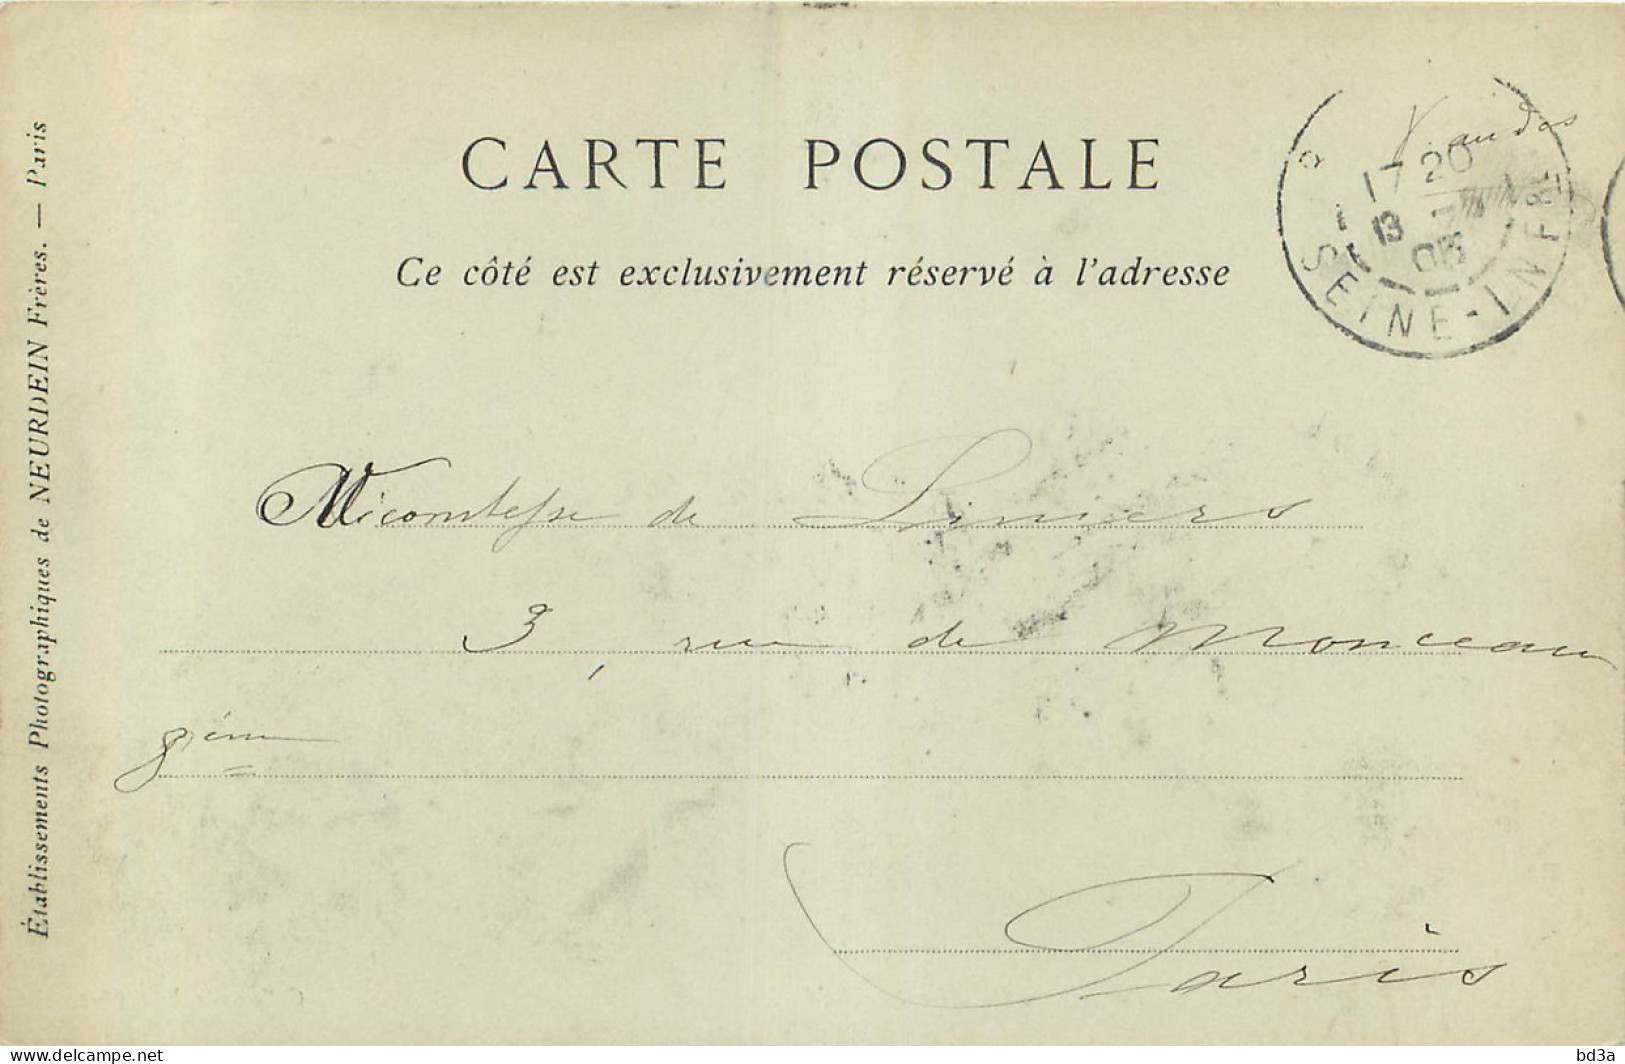 CARTE POSTALE
Ce côté est exclusivement réservé à l'adresse
V. au dos
17 20
13
03
SEINE-INFRE
Vicomtesse de Liniers
3, rue de Monceau
8ième
Paris
Établissements Photographiques de NEURDEIN Frères. — Paris
delcampe.net
bd3a